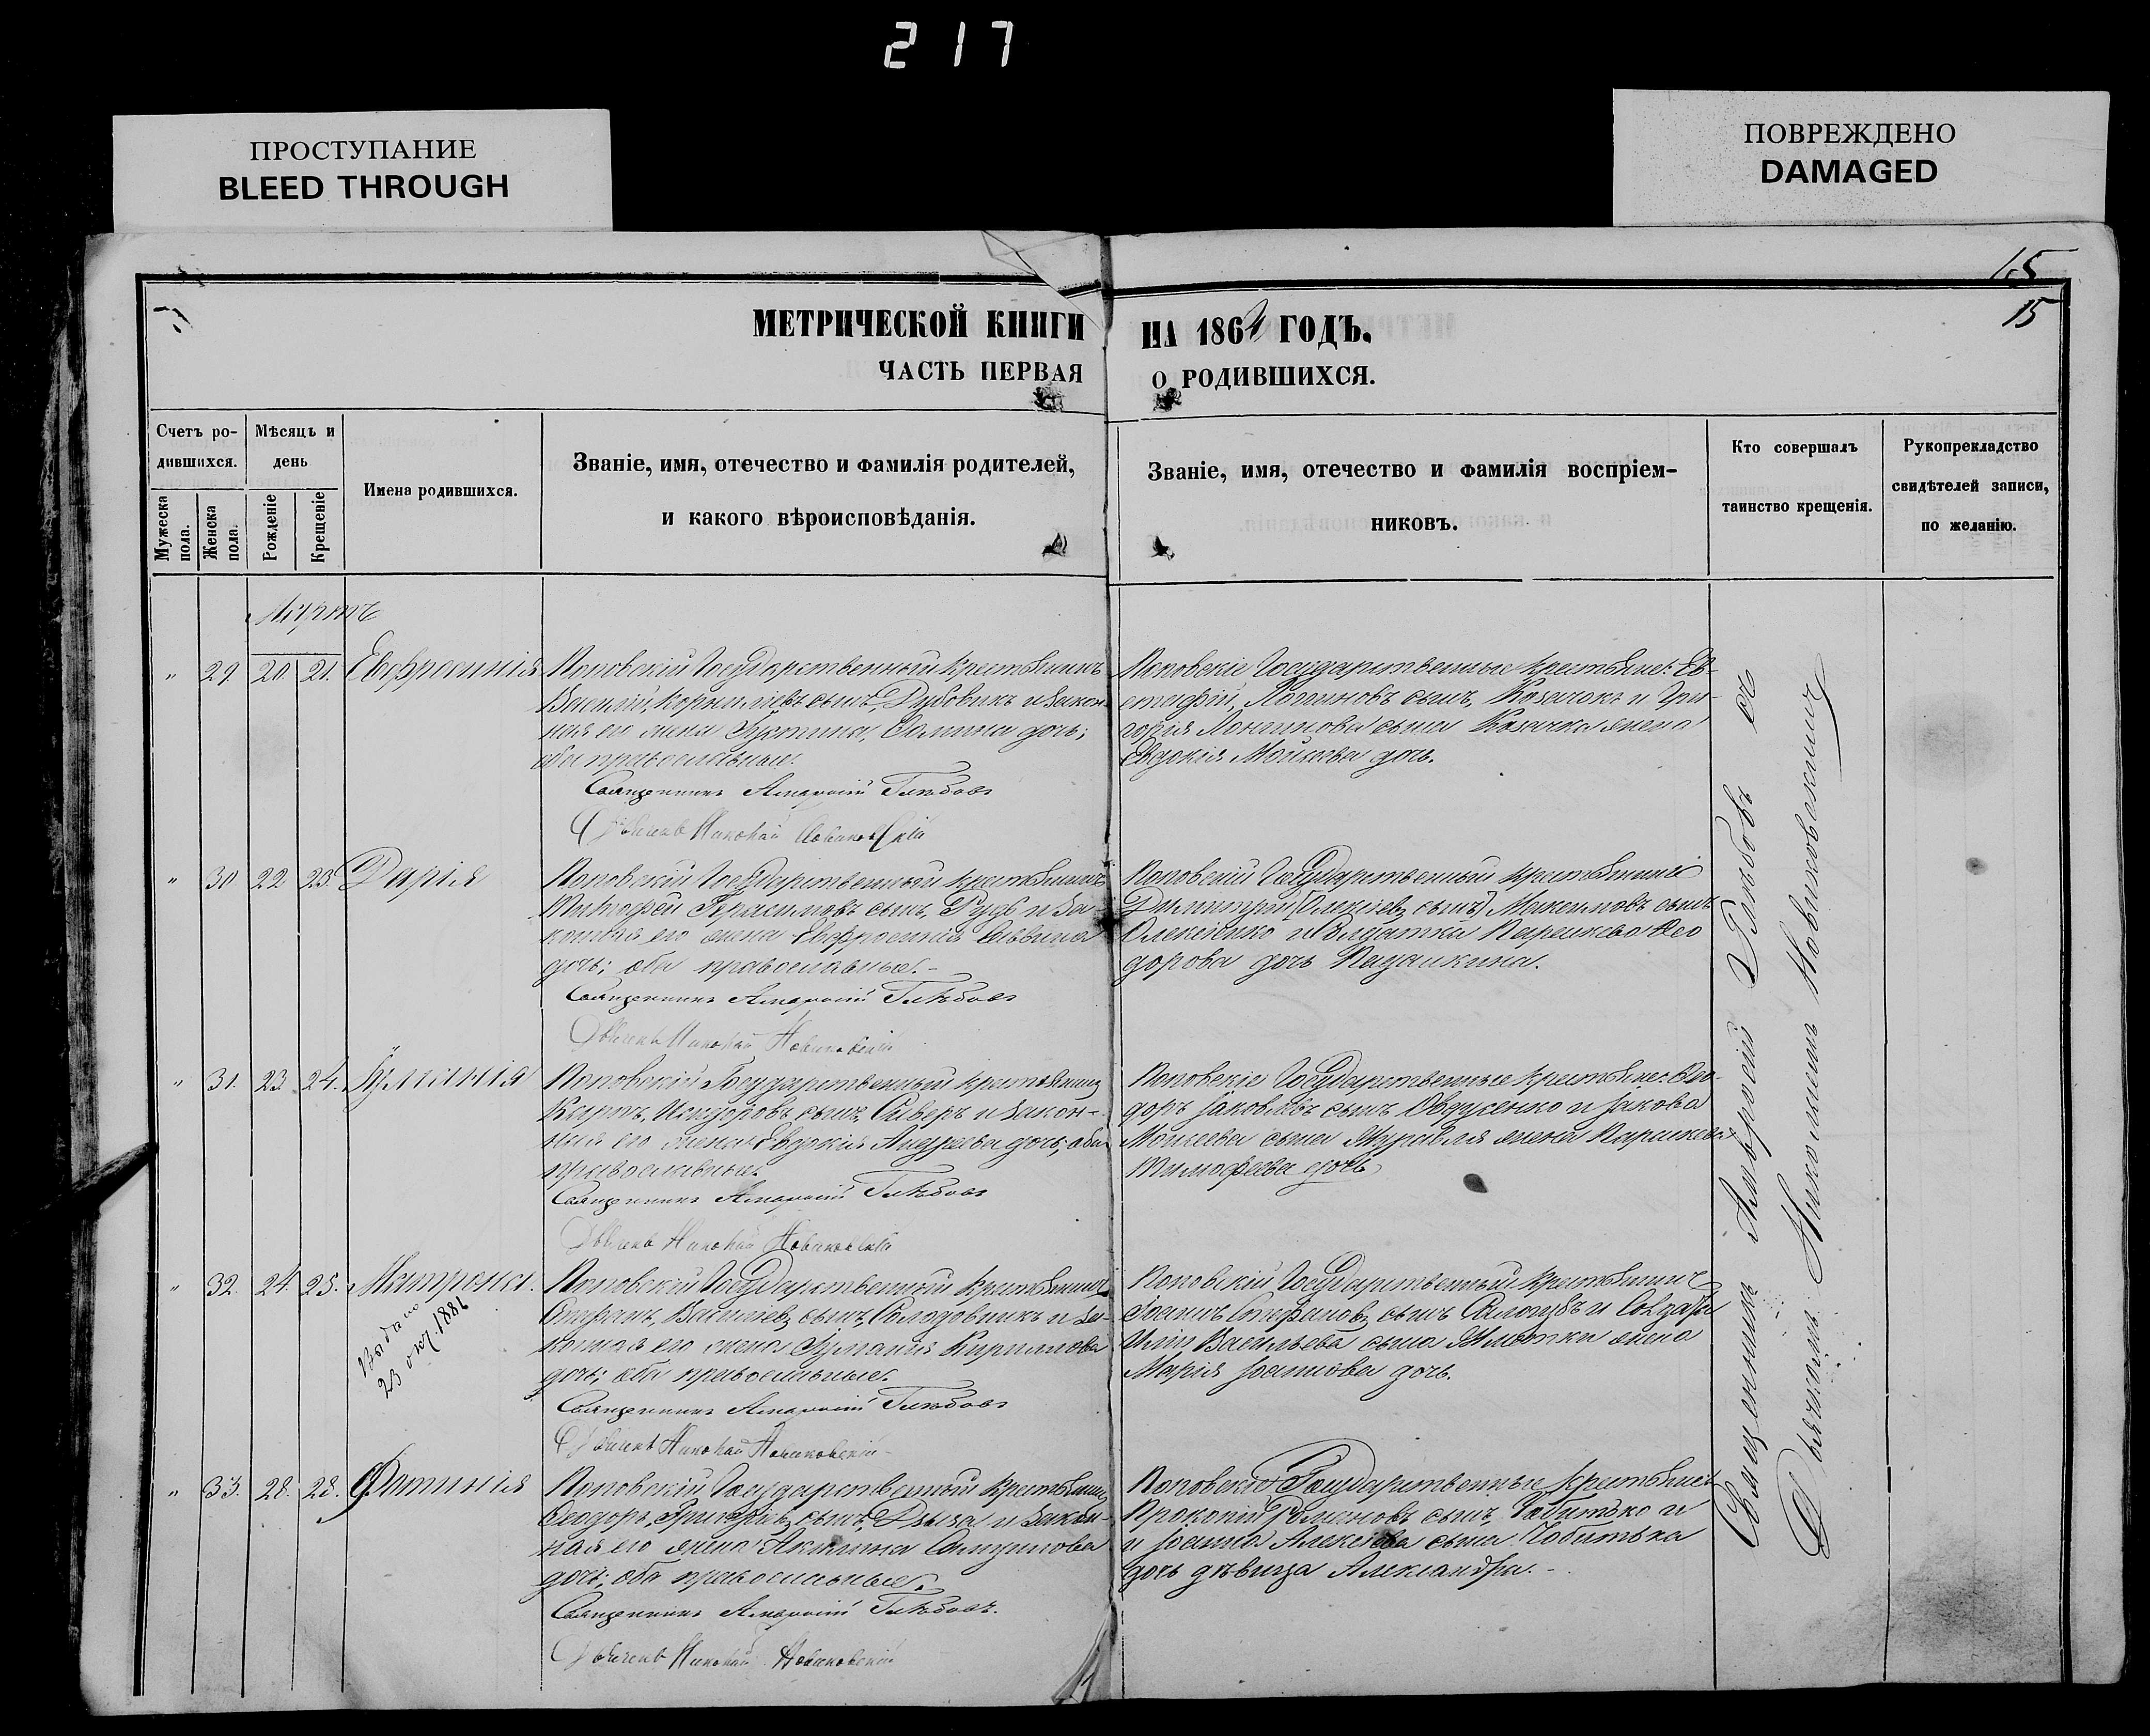 217
ПРОСТУПАНИЕ
BLEED THROUGH
ПОВРЕЖДЕНО
DAMAGED
15
15
МЕТРИЧЕСКОЙ КНИГИ НА 1864 ГОДЪ.
ЧАСТЬ ПЕРВАЯ О РОДИВШИХСЯ.
Счетъ родившихся.
Мужеска пола.
Женска пола.
Мѣсяцъ и день
Рожденіе
Крещеніе
Имена родившихся.
Званіе, имя, отечество и фамилія родителей,
и какого вѣроисповѣданія.
Званіе, имя, отечество и фамилія воспріем-
никовъ.
Кто совершалъ
таинство крещенія.
Рукоприкладство
свидѣтелей записи,
по желанію.
Мартъ
" 29 20. 21. Евфросинія
Поповскій Государственный крестьянинъ
Василій Корниліевъ сынъ Дубовикъ и закон-
ная его жена Іустина, дочь;
оба православные.
Священникъ Амвросій Глѣбовъ
Дьячекъ Николай Новиковскій
Поповскіе Государственные крестьяне: Ев-
стафій, Логиновъ сынъ, Козачокъ и Гри-
горія Логинова сына Козачка жена
Евдокія Моисеева дочь.
" 30 22 23 Дарія
Поповскій Государственный крестьянинъ
Тимофей Герасимовъ сынъ, Рудь и за-
конная его жена Евфросинія Саввина
дочь; оба православные. -
Священникъ Амвросій Глѣбовъ
Дьячекъ Николай Новиковскій
Поповскій Государственный крестьянинъ
Димитрій (Алексіевъ сынъ) Максимовъ сынъ
Алексіенко и Солдатка Параскева Ѳео
дорова дочь
" 31. 23 24. Іуліанія
Поповскій Государственный крестьянинъ
Карпъ, Исидоровъ сынъ, Сиверъ и закон-
ная его жена Евдокія Андреева дочь, оба
православные.
Священникъ Амвросій Глѣбовъ
Дьячекъ Николай Новиковскій
Поповскіе Государственные крестьяне: Ѳео-
доръ Іаковлевъ сынъ Овдіенко и Іакова
Моисеева сына Журавля жена Параскева
Тимофеева дочь
" 32. 24. 25. Матрона.
Выдано
23 окт. 1881
Поповскій Государственный крестьянинъ
Стефанъ, Васильевъ сынъ, Солодовникъ и за-
конная его жена Іуліанія Кириллова
дочь; оба православные.
Священникъ Амвросій Глѣбовъ
Дьячекъ Николай Новиковскій
Поповскій Государственный крестьянинъ
Іоаннъ Стефановъ сынъ и Солдата
Иліи Васильева сына жена
Марія Іоаннова дочь.
" 33. 28. 28. Фотинія
Поповскій Государственный крестьянинъ
Ѳеодоръ, Григорьевъ сынъ, и закон-
ная его жена Акилина
дочь; оба православные.
Священникъ Амвросій Глѣбовъ.
Дьячекъ Николай Новиковскій
Поповскіе Государственные крестьяне:
Прокопій Романовъ сынъ, Чобитько и
и Іоанна Алексіева сына Чобитька
дочь дѣвица Александра. -
Священникъ Амвросій Глѣбовъ съ
Дьячкомъ Николаемъ Новиковскимъ